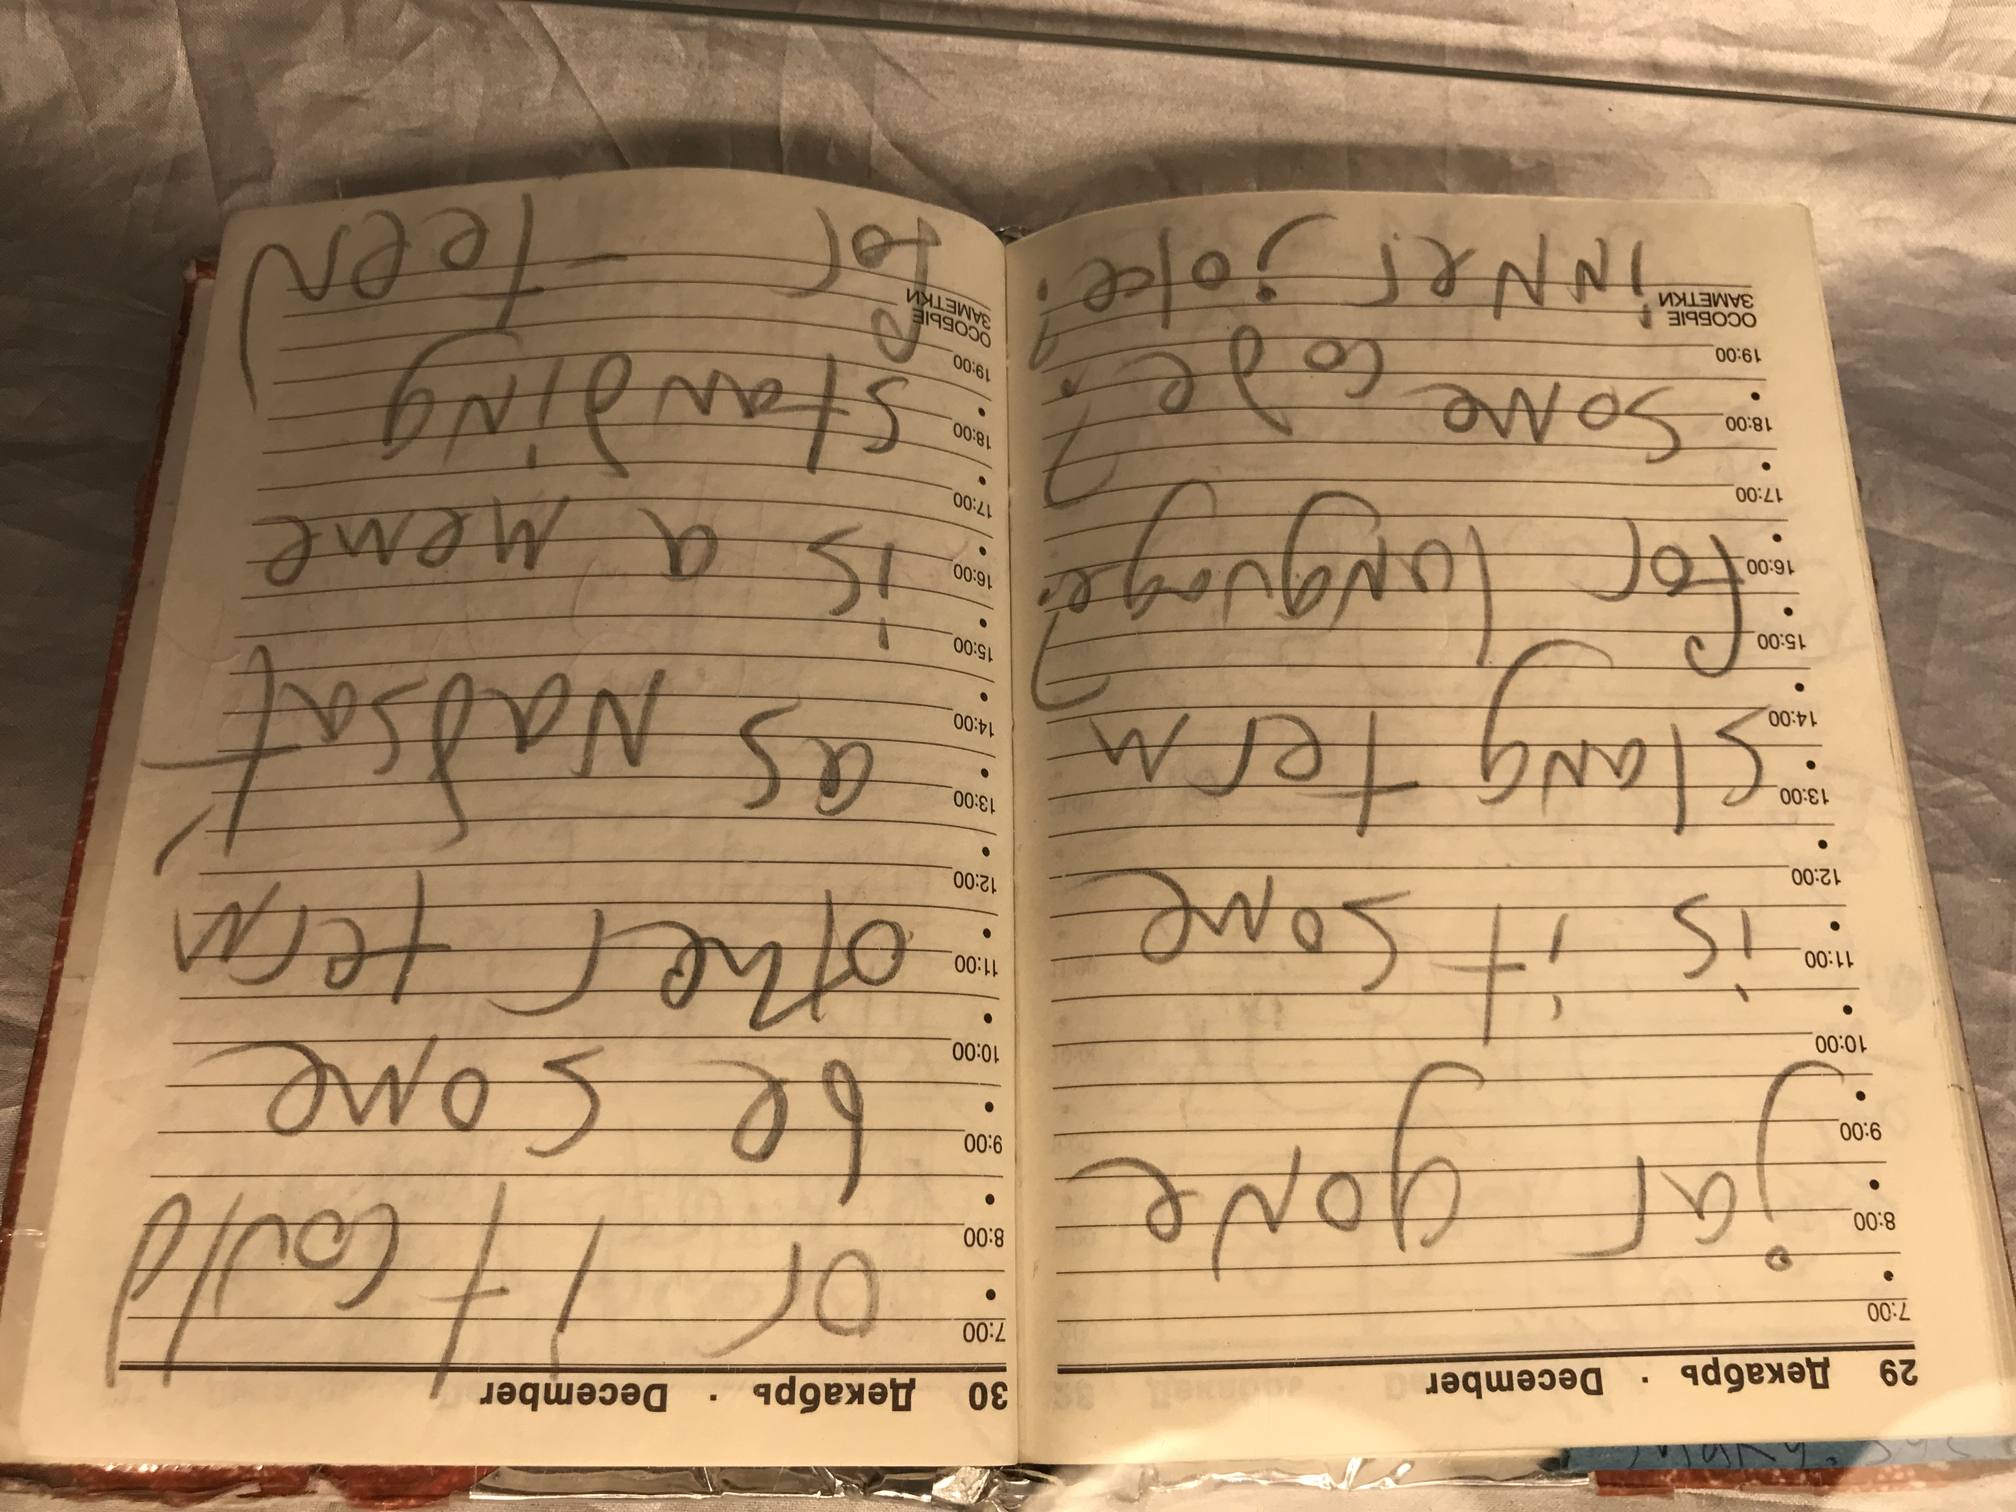 29 Декабрь · December
7:00
8:00
9:00
10:00
11:00
12:00
13:00
14:00
15:00
16:00
17:00
18:00
19:00
ОСОБЫЕ
ЗАМЕТКИ
jar gone
is it some
slang term
for language?
some code?
inner joke?
30 Декабрь · December
7:00
8:00
9:00
10:00
11:00
12:00
13:00
14:00
15:00
16:00
17:00
18:00
19:00
ОСОБЫЕ
ЗАМЕТКИ
or It could
be some
other term,
as Nadsat
is a meme
standing
for -teen